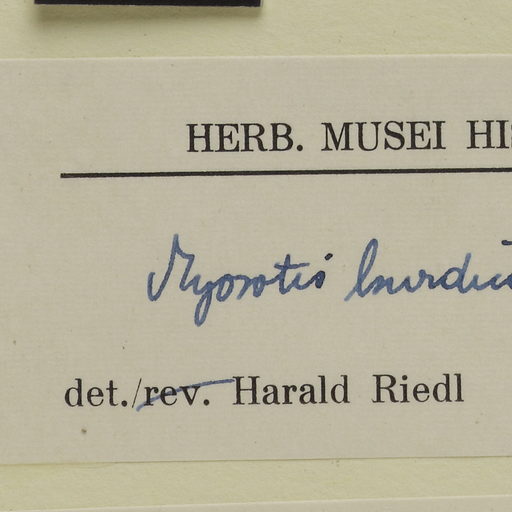 HERB. MUSEI HIS
Myosotis
det./rev. Harald Riedl